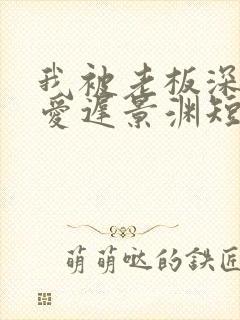 我被老板深
爱遲景渊短
萌萌哒的鉄匠